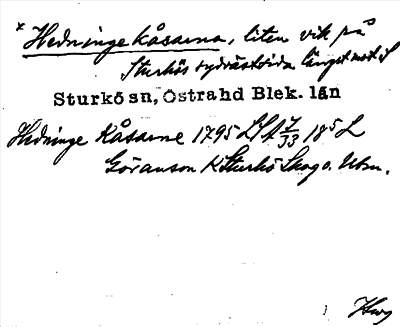 * Hedninge kåsarna, liten vik på
Sturkös sydvästsida längst mot S
Sturkö sn, Östrahd Blek. län
Hedninge Kåsarne 1795 LSA 7/33 18⁵ L
Göranson K Sturkö Skog o. Utm.
Hwg